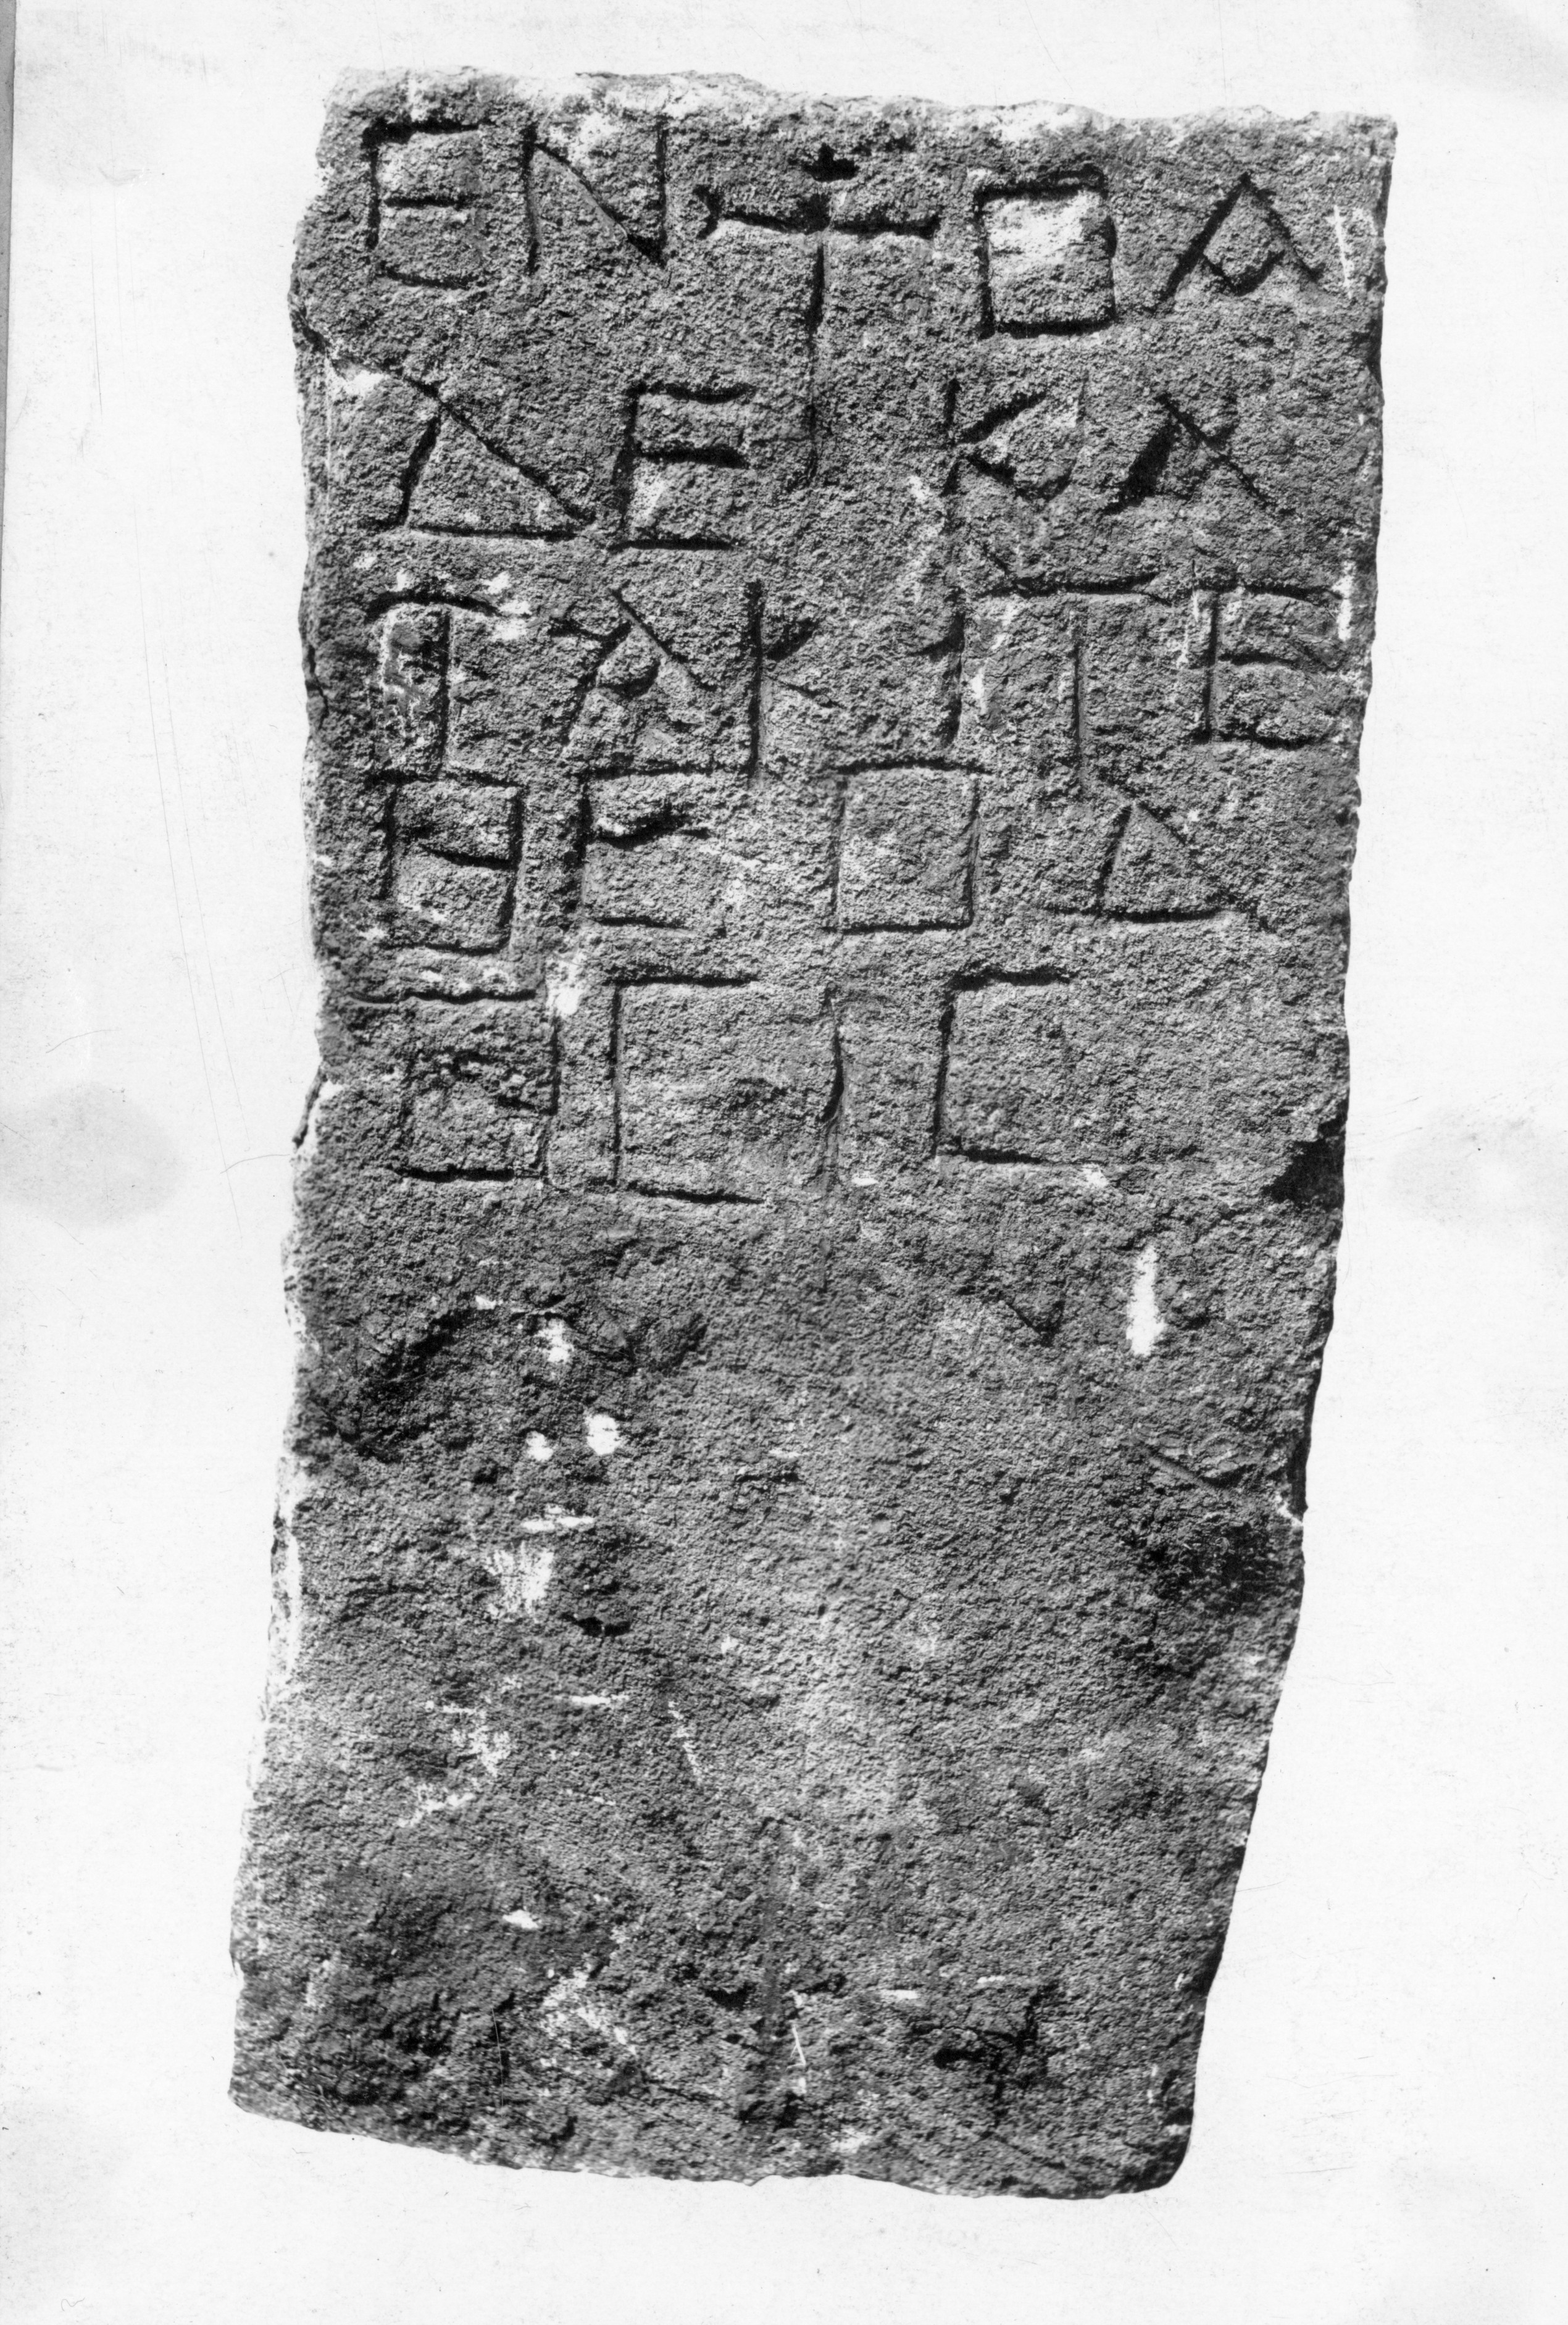 ΕΝ + ΘΑ
ΔΕ ΚΑ
ΤΑΚΙΤΕ
ΘΕΟΔ
ΟCΙC